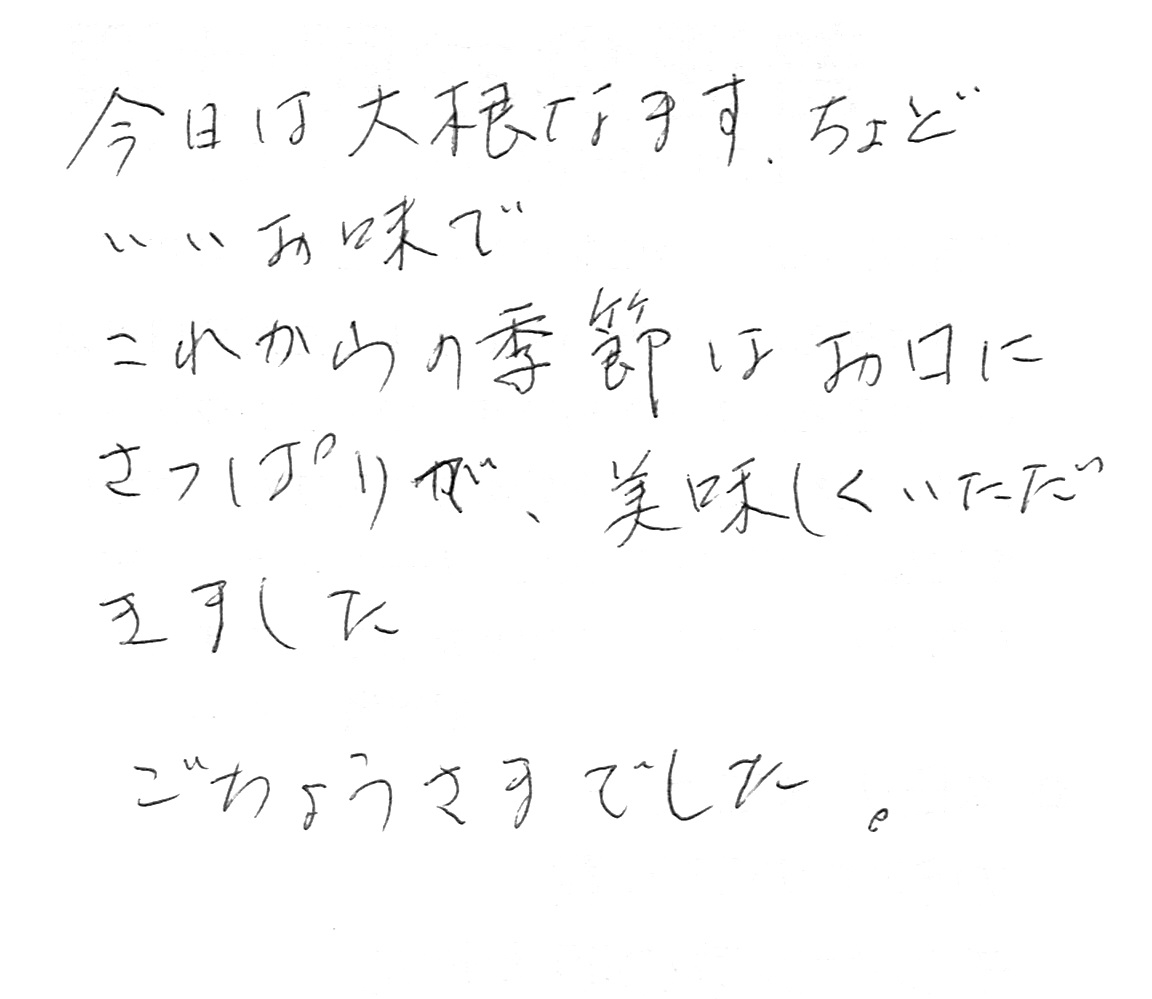 今日は大根なます、ちょど
いいお味で
これからの季節はお口に
さっぱりが、美味しくいただ
きました
ごちょうさまでした。